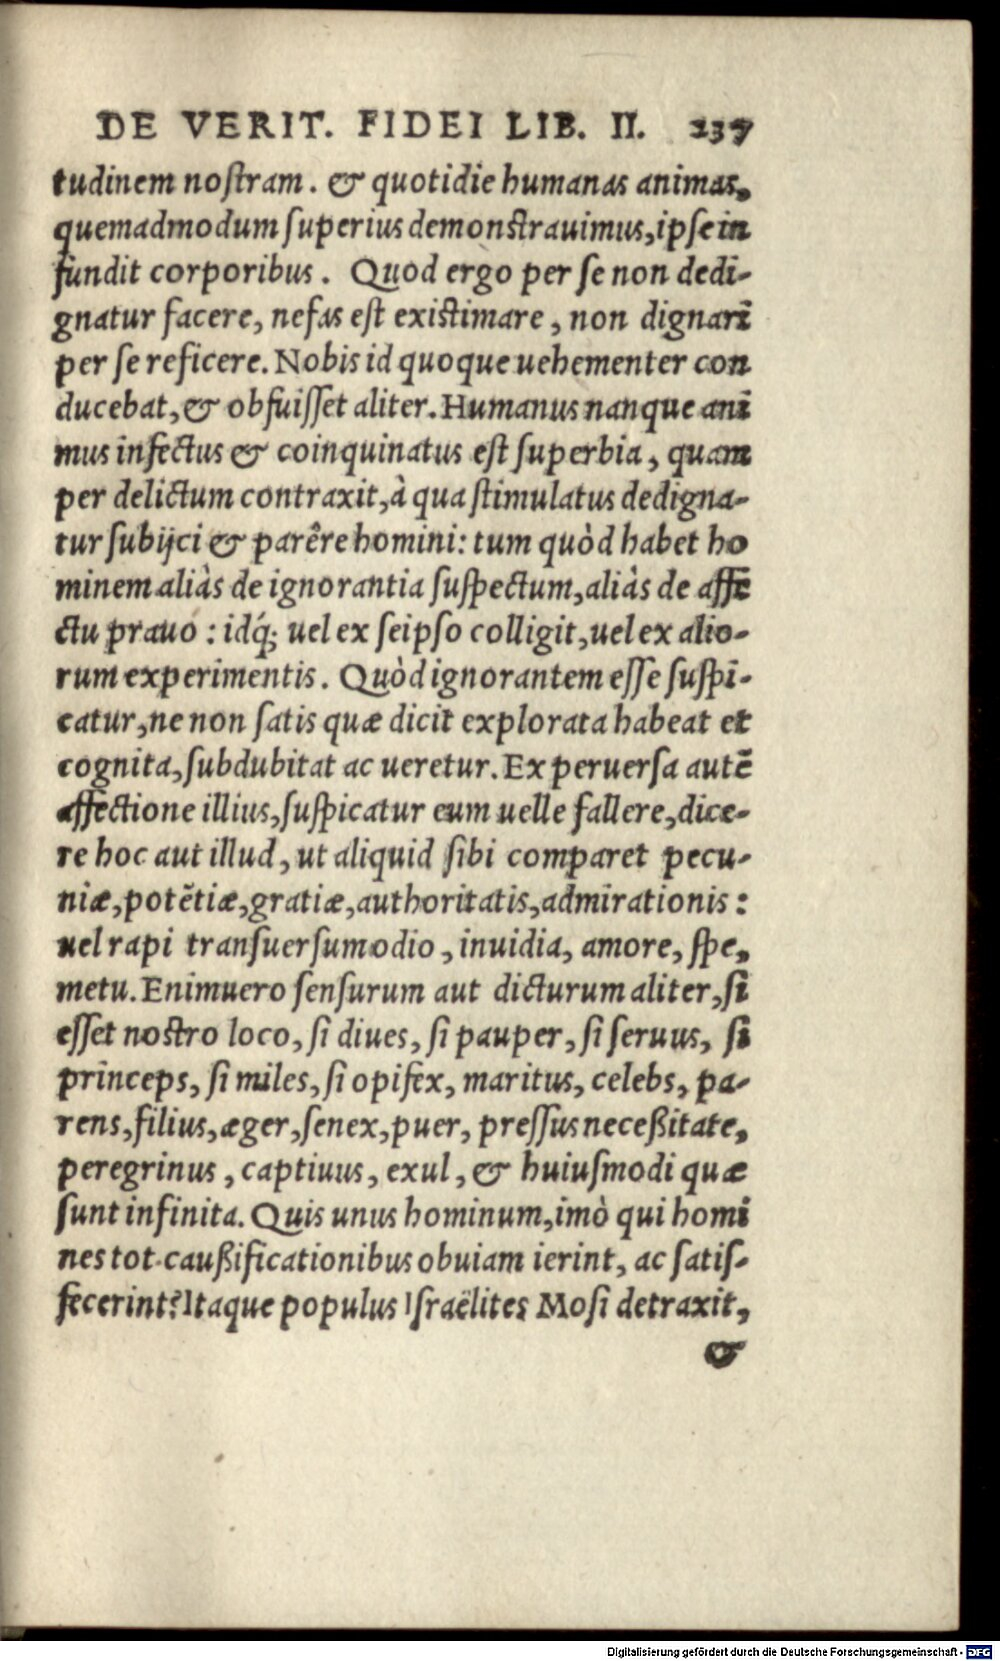 DE VERIT. FIDEI LIB. II. 237
tudinem nostram. & quotidie humanas animas,
quemadmodum superius demonstrauimus, ipse in
fundit corporibus. Quod ergo per se non dedi-
gnatur facere, nefas est existimare, non dignari
per se reficere. Nobis id quoque uehementer con
ducebat, & obfuisset aliter. Humanus nanque ani
mus infectus & coinquinatus est superbia, quam
per delictum contraxit, à qua stimulatus dedigna-
tur subijci & parêre homini: tum quòd habet ho
minem aliàs de ignorantia suspectum, aliàs de affe
ctu prauo: idq́; uel ex seipso colligit, uel ex alio-
rum experimentis. Quòd ignorantem esse suspi-
catur, ne non satis quæ dicit explorata habeat et
cognita, subdubitat ac ueretur. Ex peruersa autē
affectione illius, suspicatur eum uelle fallere, dice-
re hoc aut illud, ut aliquid sibi comparet pecu-
niæ, potētiæ, gratiæ, authoritatis, admirationis:
uel rapi transuersum odio, inuidia, amore, spe,
metu. Enimuero sensurum aut dicturum aliter, si
esset nostro loco, si diues, si pauper, si seruus, si
princeps, si miles, si opifex, maritus, celebs, pa-
rens, filius, æger, senex, puer, pressus neceßitate,
peregrinus, captiuus, exul, & huiusmodi quæ
sunt infinita. Quis unus hominum, imò qui homi
nes tot caußificationibus obuiam ierint, ac satis-
fecerint? Itaque populus Israëlites Mosi detraxit,
&
Digitalisierung gefördert durch die Deutsche Forschungsgemeinschaft - DFG